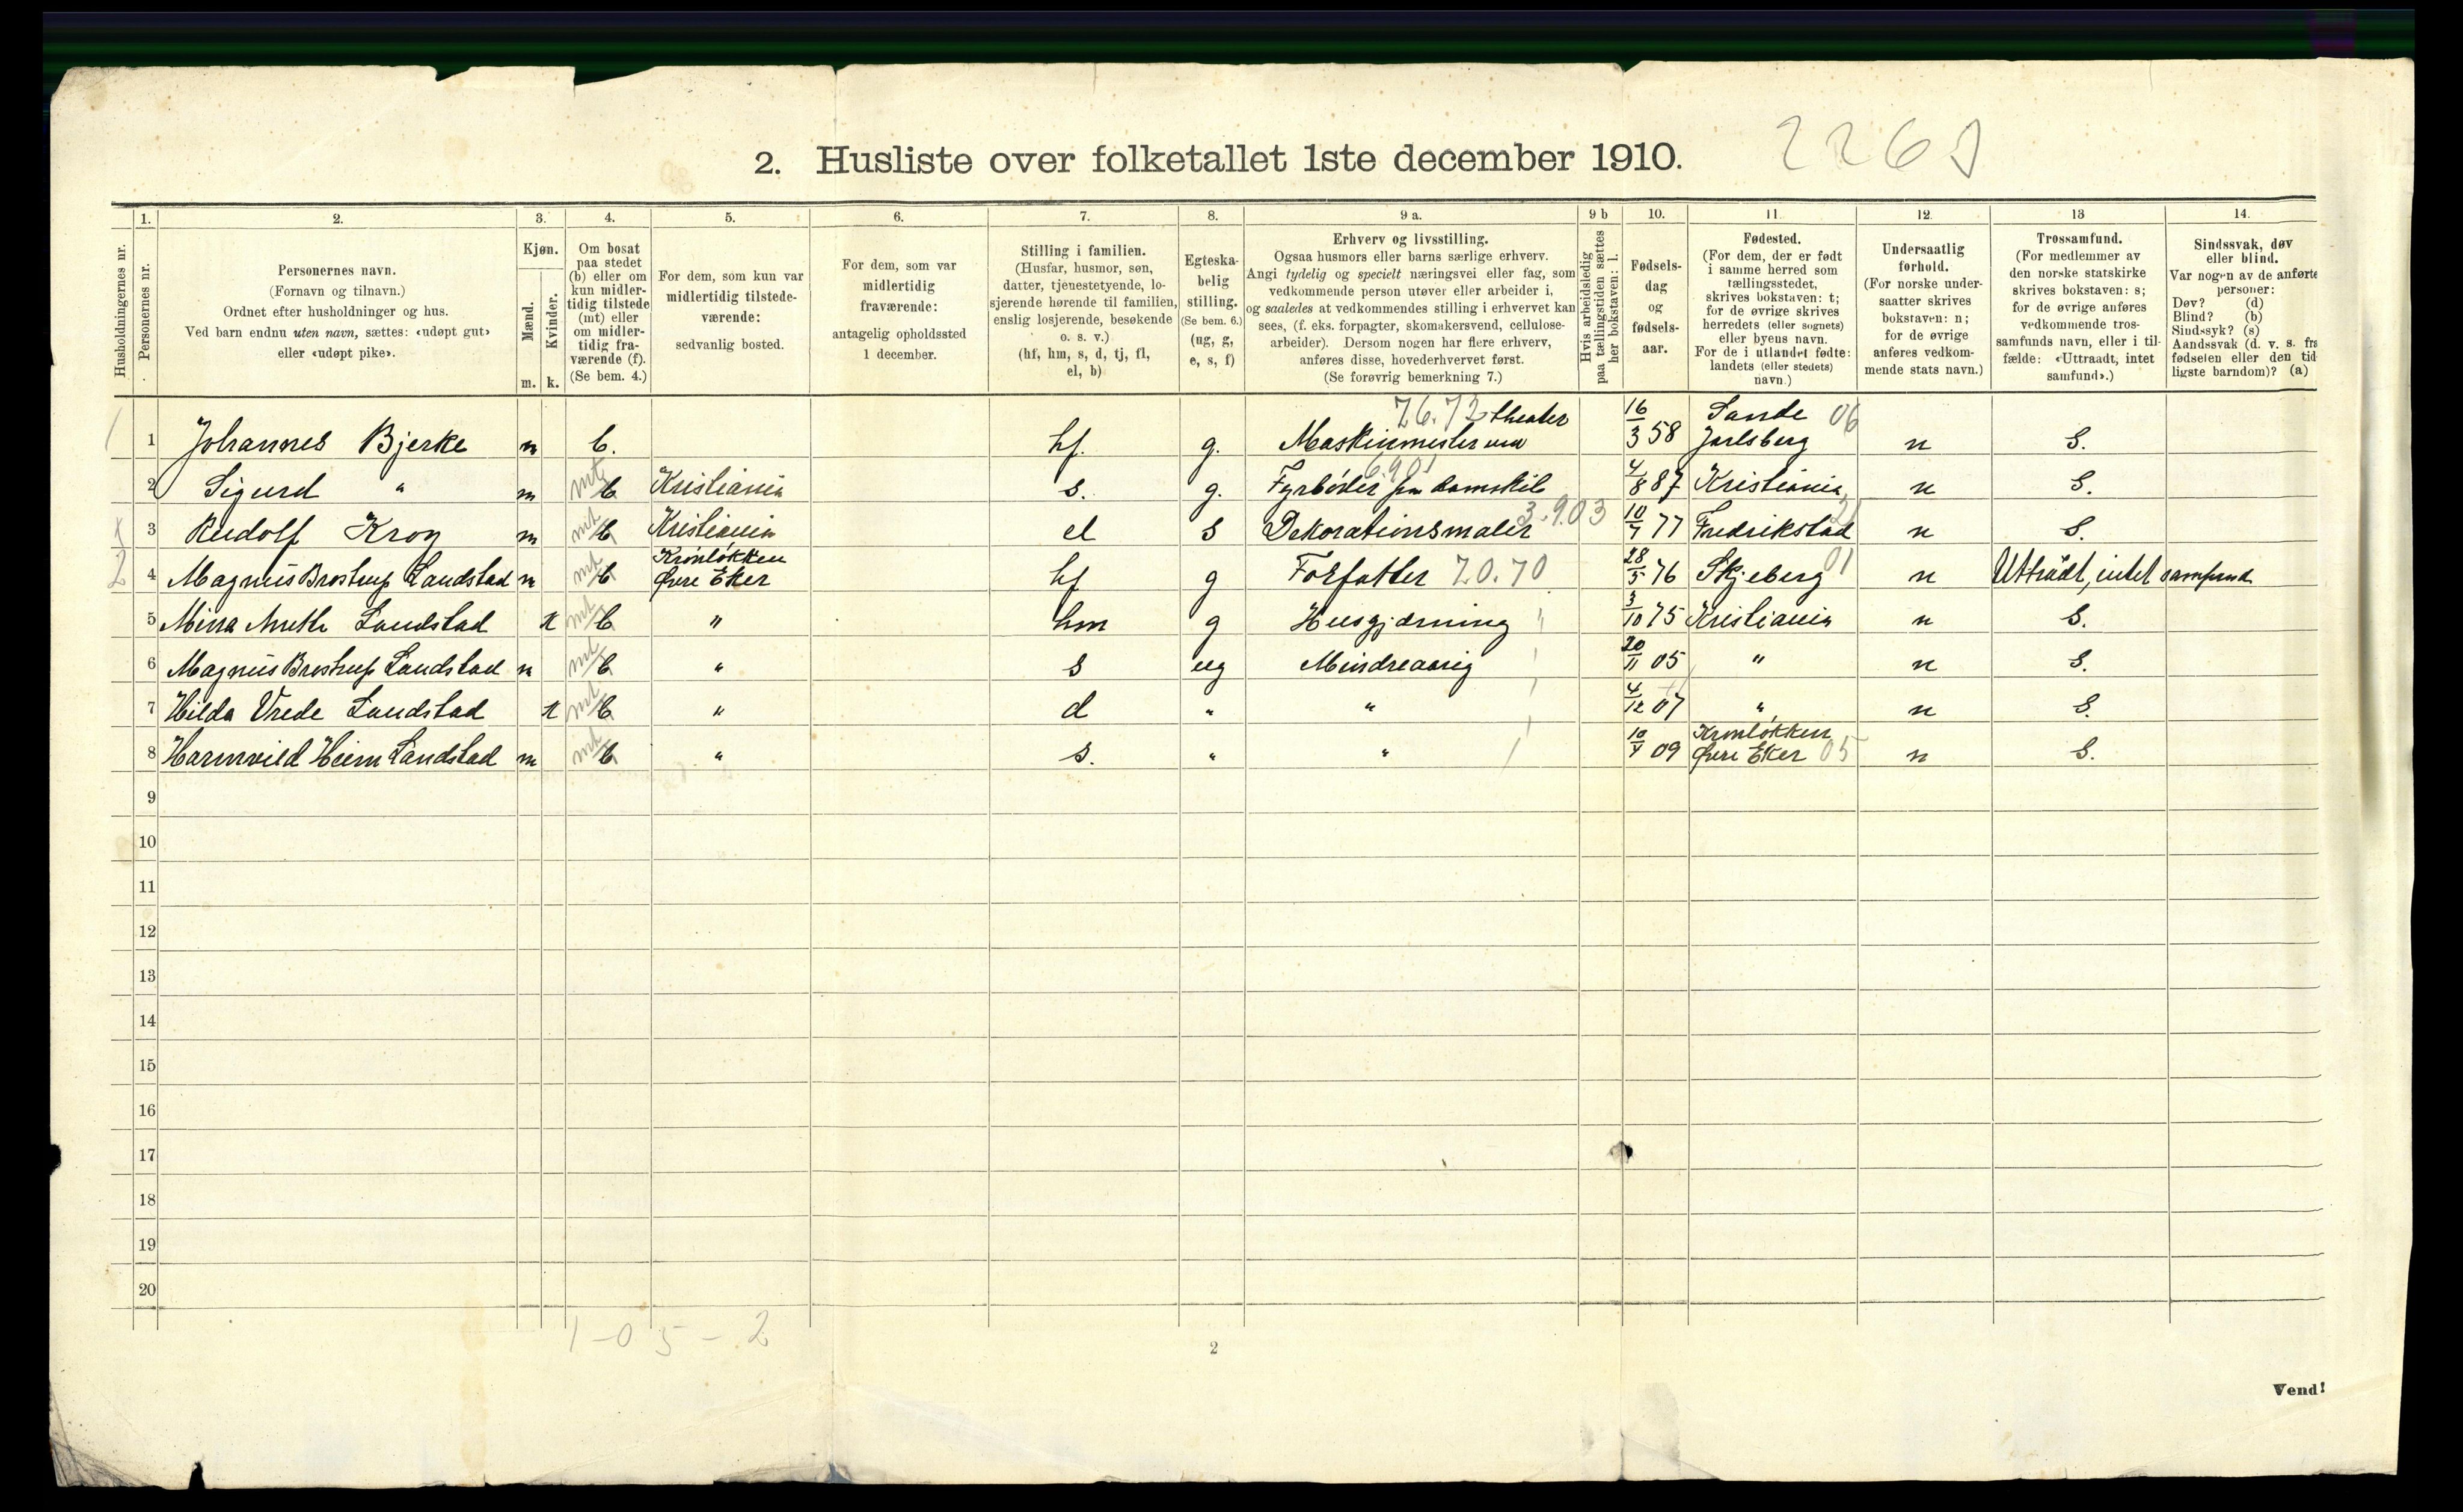 2. Husliste over folketallet 1ste december 1910.
1. 2. 3. 4. 5. 6. 7. 8. 9 a. 9 b 10. 11. 12. 13 14.
Husholdningernes nr.
Personernes nr.
Personernes navn.
(Fornavn og tilnavn.)
Ordnet efter husholdninger og hus.
Ved barn endnu uten navn, sættes: «udøpt gut»
eller «udøpt pike».
Kjøn.
Mænd.
Kvinder.
m. k.
Om bosat
paa stedet
(b) eller om
kun midler-
tidig tilstede
(mt) eller
om midler-
tidig fra-
værende (f).
(Se bem. 4.)
For dem, som kun var
midlertidig tilstede-
værende:
sedvanlig bosted.
For dem, som var
midlertidig
fraværende:
antagelig opholdssted
1 december.
Stilling i familien.
(Husfar, husmor, søn,
datter, tjenestetyende, lo-
sjerende hørende til familien,
enslig losjerende, besøkende
o. s. v.)
(hf, hm, s, d, tj, fl,
el, b)
Egteska-
belig
stilling.
(Se bem. 6.)
(ug, g,
e, s, f)
Erhverv og livsstilling.
Ogsaa husmors eller barns særlige erhverv.
Angi tydelig og specielt næringsvei eller fag, som
vedkommende person utøver eller arbeider i,
og saaledes at vedkommendes stilling i erhvervet kan
sees, (f. eks. forpagter, skomakersvend, cellulose-
arbeider). Dersom nogen har flere erhverv,
anføres disse, hovederhvervet først.
(Se forøvrig bemerkning 7.)
Hvis arbeidsledig
paa tællingstiden sættes
her bokstaven: l.
Fødsels-
dag
og
fødsels-
aar.
Fødested.
(For dem, der er født
i samme herred som
tællingsstedet,
skrives bokstaven: t;
for de øvrige skrives
herredets (eller sognets)
eller byens navn.
For de i utlandet fødte:
landets (eller stedets)
navn.)
Undersaatlig
forhold.
(For norske under-
saatter skrives
bokstaven: n;
for de øvrige
anføres vedkom-
mende stats navn.)
Trossamfund.
(For medlemmer av
den norske statskirke
skrives bokstaven: s;
for de øvrige anføres
vedkommende tros-
samfunds navn, eller i til-
fælde: «Uttraadt, intet
samfund».)
Sindssvak, døv
eller blind.
Var nogen av de anførte
personer:
Døv? (d)
Blind? (b)
Sindssyk? (s)
Aandssvak (d. v. s. fra
fødselen eller den tid-
ligste barndom)? (a)
76.72 theater 16 Sande 06
1 1 Johannes Bjerke m b. hf. g. Maskinmester ved 3 58 Jarlsberg n S.
2 Sigurd " m mt b Kristiania s. g. Fyrbøder 4/8 87 Kristiania n S.
3.9.03
3 Rudolf Krog m mt b Kristiania el s Dekorationsmaler 10/7 77 Fredrikstad n S.
Krønløkken
2 4 Magnus Brostrup Landstad m mt b Øvre Eker hf g Forfatter 70.70 28/5 76 Skjeberg 01 n Uttrådt, intet samfund
5 Mina Landstad k mt b " hm g Husgjerning 3/10 75 Kristiania n S.
6 Magnus Brostrup Landstad m mt b " s ug Mindreaarig 20/11 05 " n S.
7 Hilda Vrede Landstad k mt b " d " " 4/12 07 " n S.
Krønløkken
8 Heim Landstad m mt b " s. " " 09 Øvre Eker 05 n S.
9
10
11
12
13
14
15
16
17
18
19
20
1-0 5-2
2
Vend!